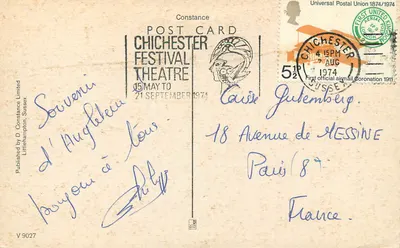 Constance
POST CARD
CHICHESTER
FESTIVAL
THEATRE
15 MAY TO
21 SEPTEMBER 1974
Universal Postal Union 1874/1974
CHICHESTER
4 15PM
7 AUG
1974
SUSSEX
5½P
First official airmail Coronation 1911
Souvenir
d'Angleterre
bonjour à tous
Philippe
Gutemberg.
18 Avenue de MESSINE
Paris 8e
France.
Published by D. Constance Limited
Littlehampton, Sussex
V 9027